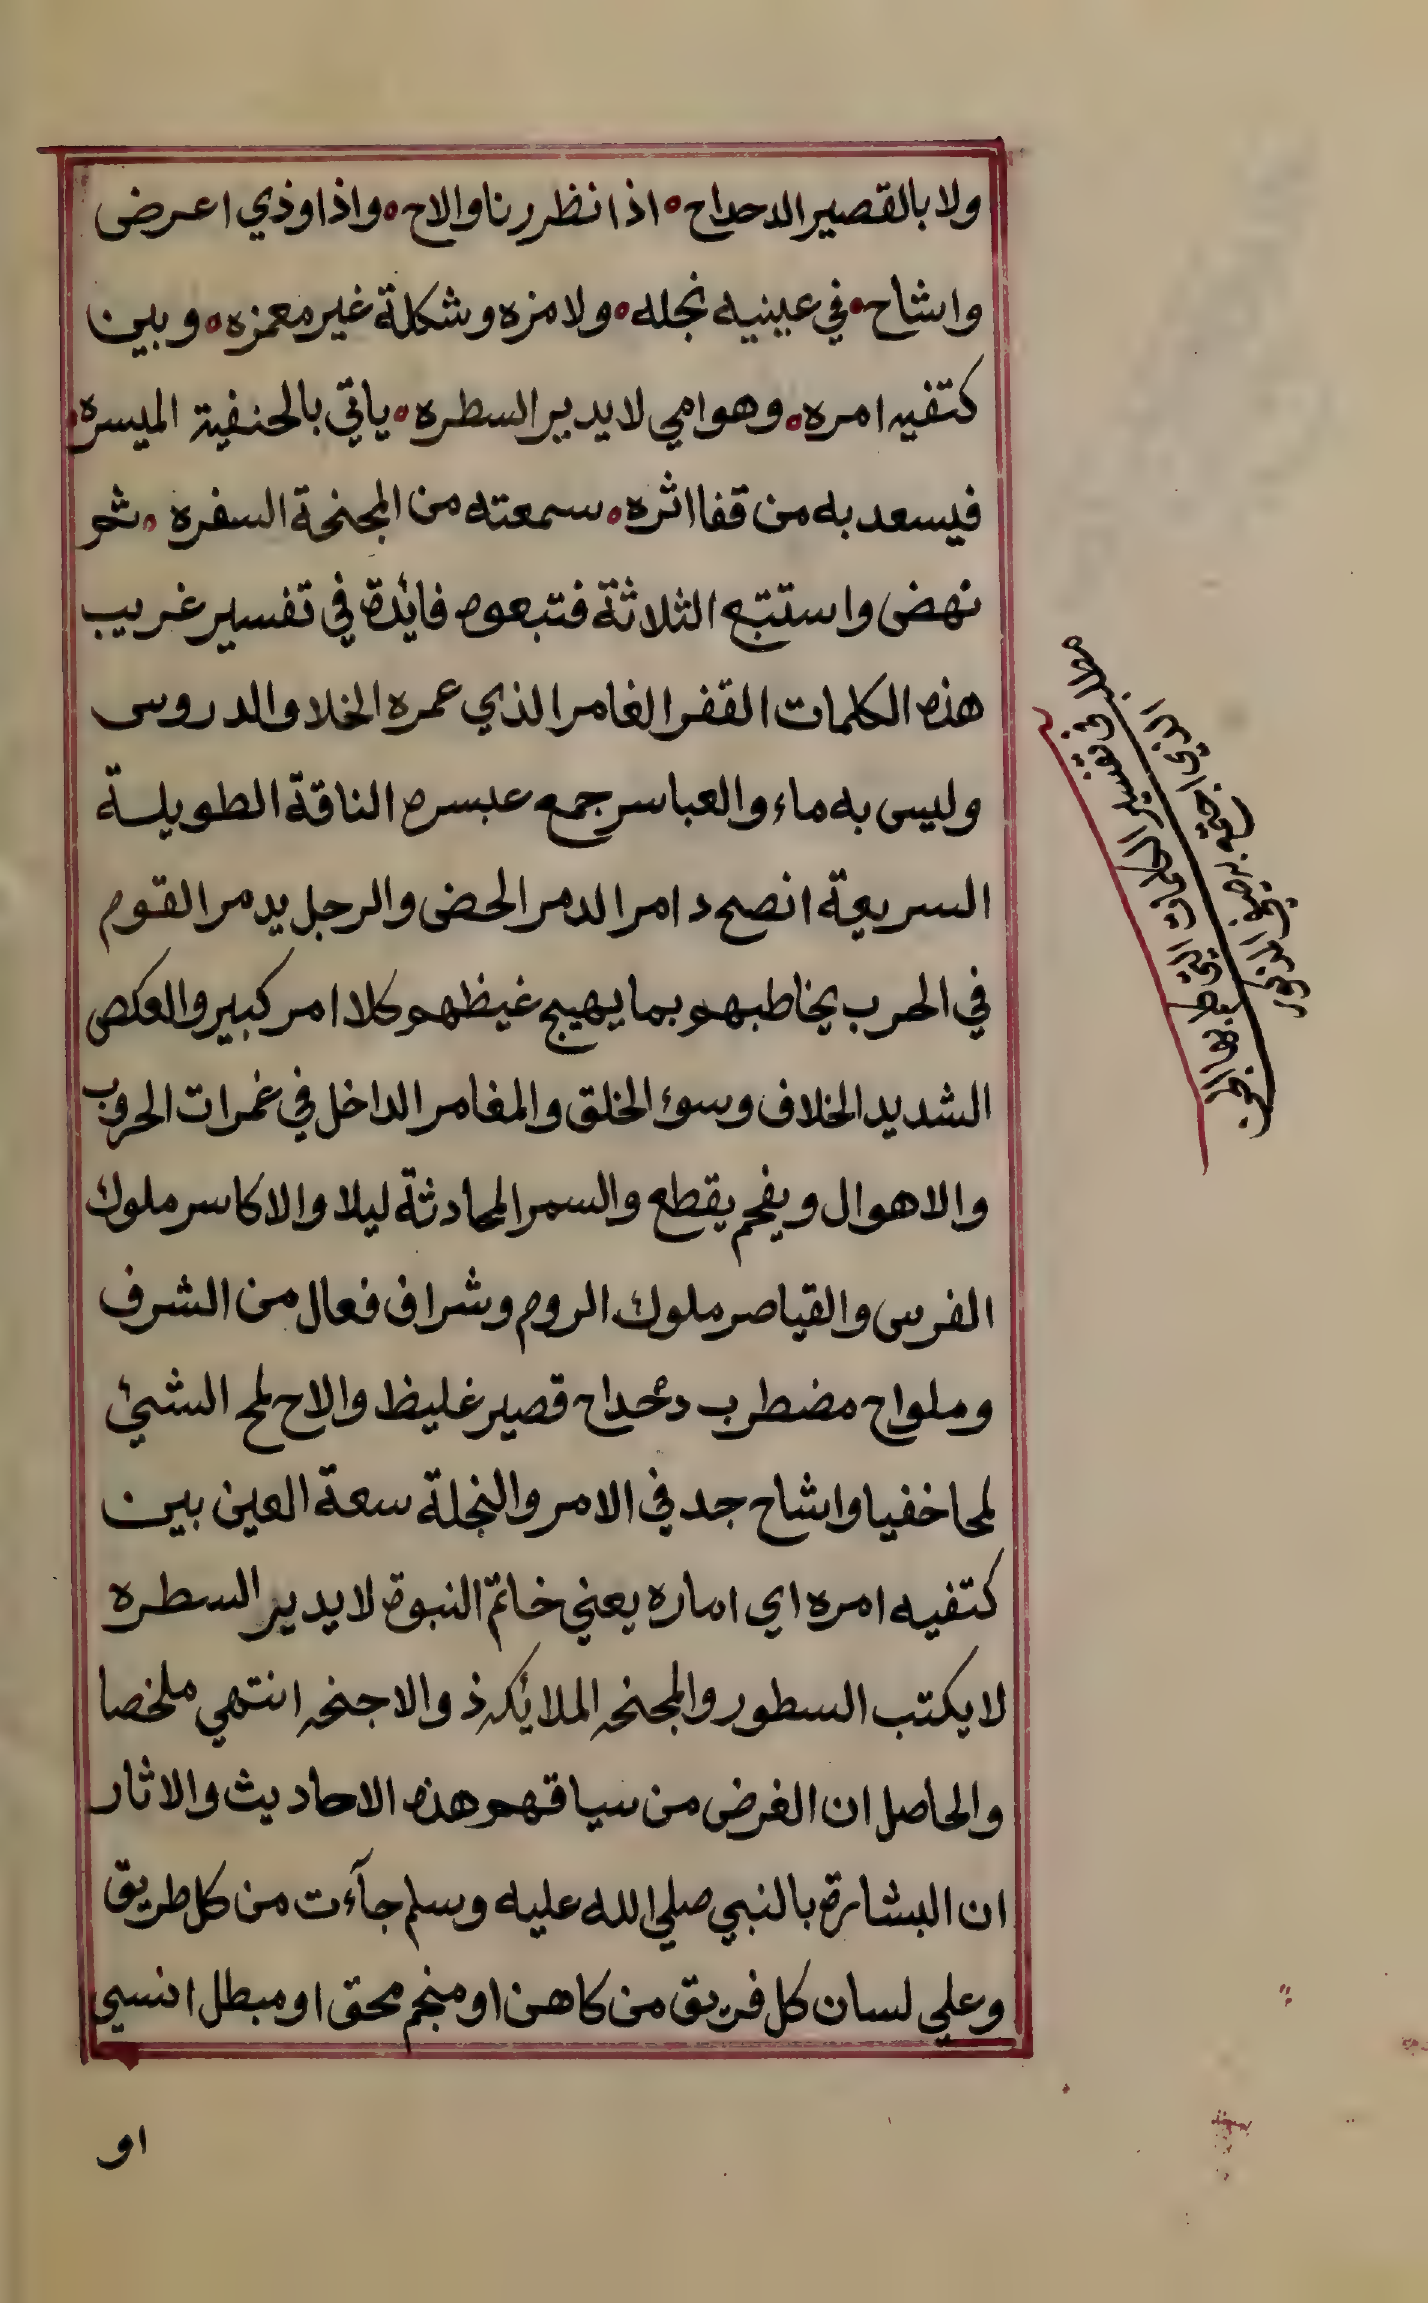 ولا بالقصير الدحداح • اذا نظر رنا والاح • واذا وذي اعرض
واشاح • في عينيه نجله • ولا مزه وشكلة غير معمزه • وبين
كتفيه امره • وهو امي لا يدير السطره • ياتي بالحنفية الميسره •
فيسعد به من قفا اثره • سمعته من المجنحة السفره • ثم
نهض واستتبع الثلاثة فتبعوه فائدة في تفسير غريب
هذه الكلمات القفر الغامر الذي عمره الخلا والدروس
وليس به ماء والعباسر جمع عبسره الناقة الطويلة
السريعة انصح دامر الدمر الحض والرجل يدمر القوم
في الحرب يخاطبهم بما يهيج غيظهم كلا امر كبير والعكص
الشديد الخلاف وسوء الخلق والمغامر الداخل في غمرات الحروب
والاهوال ويفحم يقطع والسمر المحادثة ليلا والاكاسر ملوك
الفرس والقياصر ملوك الروم وشراف فعال من الشرف
وملواح مضطرب دحداح قصير غليظ والاح لمح الشيئ
لمحا خفيا واشاح جد في الامر والنجلة سعة العين بين
كتفيه امره اي اماره يعني خاتم النبوة لا يدير السطره
لا يكتب السطور والمجنحه الملائكه ذ والاجنحه انتهي ملخصا
والحاصل ان الغرض من سياقهم هذه الاحاديث والاثار
ان البشارة بالنبي صلي الله عليه وسلم جآءت من كل طريق
وعلي لسان كل فريق من كاهن او منجم محق او مبطل انسي
او
في تفسير الكلمات التي خاطبها الجن
الذي